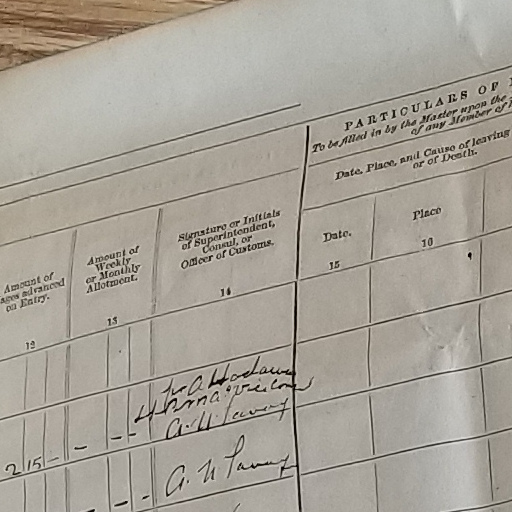 PARTICULARS OF
To be filled in by the Master upon the
of any Member of
Date, Place, and Cause of leaving
or of Death.
Amount of
ages advanced
on Entry.
Amount of
Weekly
or Monthly
Allotment.
Signature or Initials
of Superintendent,
Consul, or
Officer of Customs.
Date.
Place
12
13
14
15
10
2 15 - - - -
- - -